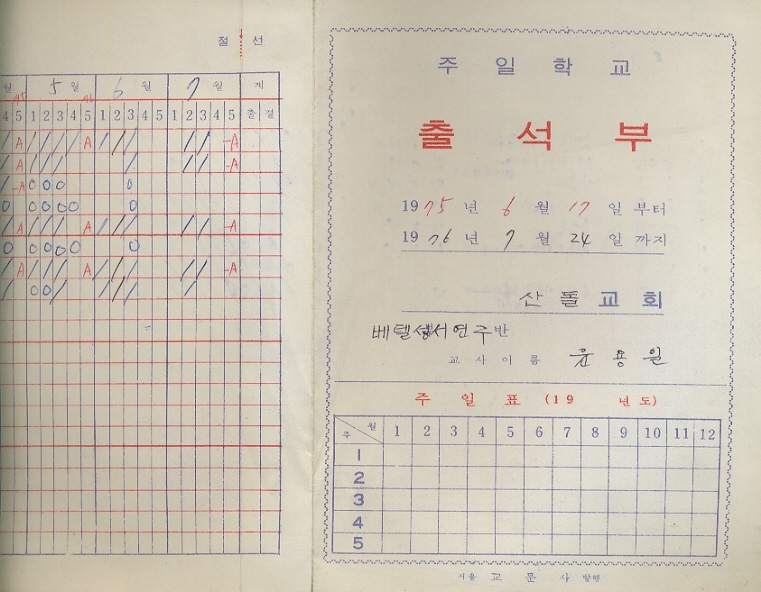 절 선
월 5월 6월 7월 계
4 5 1 2 3 4 5 1 2 3 4 5 1 2 3 4 5 출 결
주일학교
출석부
1975년 6월 17일부터
1976년 7월 24일까지
산돌교회
베델성서연구반
교사이름 윤용원
주일표 (19 년도)
주 월 1 2 3 4 5 6 7 8 9 10 11 12
1
2
3
4
5
서울 교문사 발행